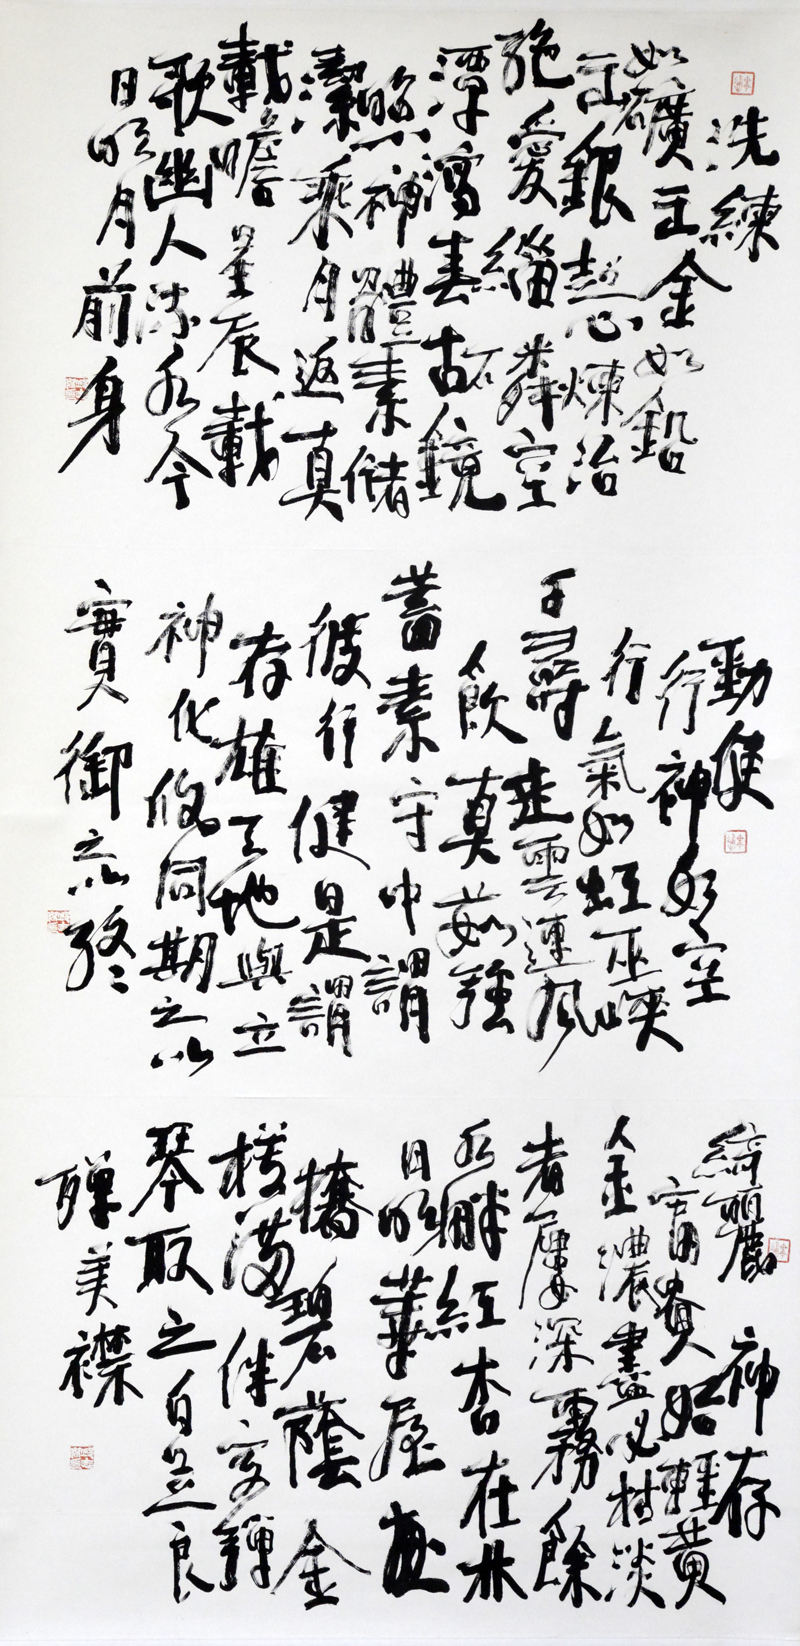 洗練
如礦出金如鉛
出銀超心煉冶
絕愛緇磷空
潭瀉春古鏡
照神體素儲
潔乘月返真
載瞻星辰載
歌幽人流水今
日明月前身
勁健
行神如空
行氣如虹巫峽
千尋走雲連風
飲真茹強
蓄素守中謂
彼行健是謂
存雄天地與立
神化攸同期之以
實御之以終
綺麗 神存
富貴始輕黃
金濃盡必枯淡
者屢深霧餘
水畔紅杏在林
日明華屋畫
橋碧蔭金
樽滿伴客彈
琴取之自足良
殫美襟